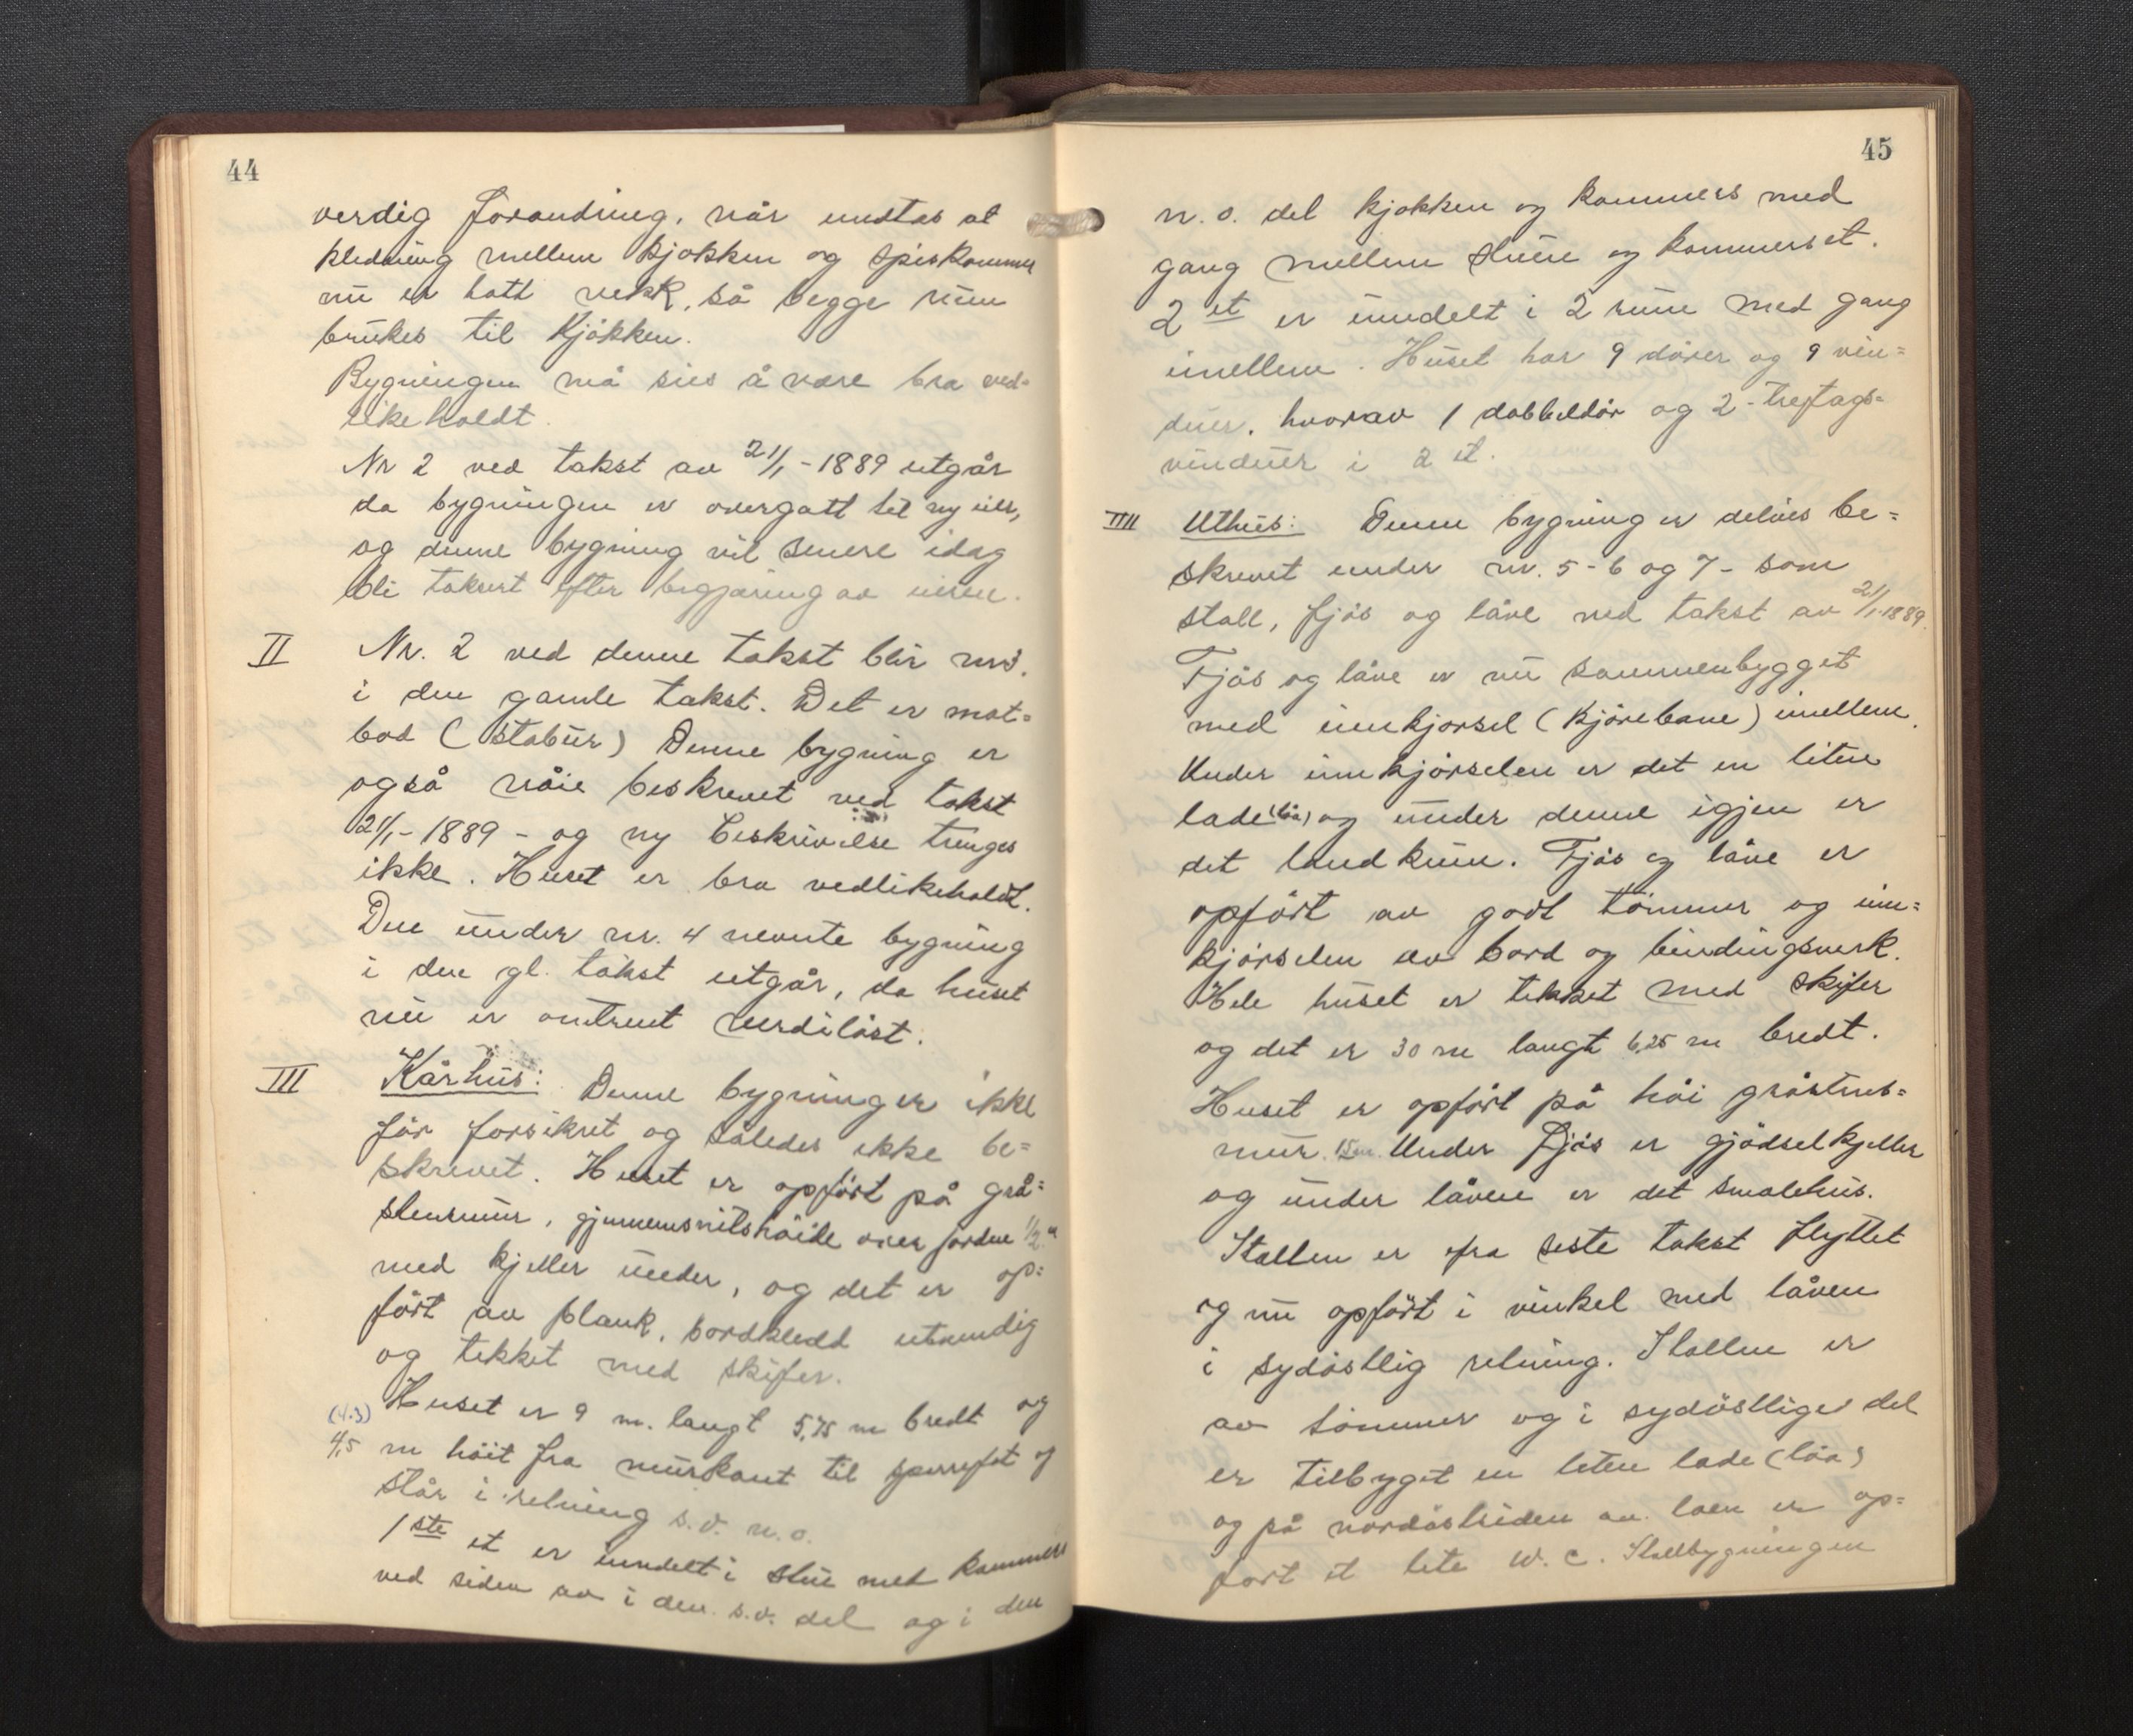 44
verdig forandring, når undtas at
kledning mellem kjøkken og spiskammer
nu er tatt vekk, så begge rum
brukes til kjøkken.
Bygningen må sies å være bra ved=
likeholdt.
Nr 2 ved takst av 21/1-1889 utgår
da bygningen er overgått til ny eier,
og denne bygning vil senere idag
bli taksert efter begjæring av eieren.
II Nr. 2 ved denne takst blir nr 3.
i den gamle takst. Det er mat=
bod (stabur) Denne bygning er
også nøie beskrevet ved takst
21/1-1889 - og ny beskrivelse trenges
ikke. Huset er bra vedlikeholdt.
Den under nr. 4 nevnte bygning
i den gl. takst utgår, da huset
nu er omtrent verdiløst.
III Kårhus: Denne bygning er ikke
før forsikret og således ikke be=
skrevet. Huset er opført på grå=
stensmur, gjennemsnitshøide over jorden 1/2 m
med kjeller under, og det er op=
ført av plank, bordkledd utvendig
og tekket med skifer.
Huset er 9 m. langt 5,75 m bredt og
(4.3)
4,5 m høit fra murkant til sperrefot og
står i retning s.v. n.o.
1ste et er inndelt i stue med kammers
ved siden av i den s.v. del og i den
45
n.o. del kjøkken og kammers med
gang mellem stuen og kammerset.
2 et er inndelt i 2 rum med gang
imellem. Huset har 9 dører og 9 vin=
duer, hvorav 1 dobbeldør og 2 - trefags=
vinduer i 2 et.
IIII Uthus: Denne bygning er delvis be=
skrevet under nr. 5 - 6 og 7 - som
stall, fjøs og låve ved takst av 21/1-1889.
Fjøs og låve er nu sammenbygget
med innkjørsel (kjørebane) imellem.
Under innkjørselen er det en liten
lade (løa) og under denne igjen er
det landkum. Fjøs og låve er
opført av godt tømmer og inn=
kjørselen av bord og bindingsverk.
Hele huset er tekket med skifer
og det er 30 m langt 6,25 m bredt.
Huset er opført på høi gråstens=
mur. Under fjøs er gjødselkjeller
og under låven er det smalehus.
Stallen er fra siste takst flyttet
og nu opført i vinkel med låven
i sydøstlig retning. Stallen er
av tømmer og i sydøstlige del
er tilbyget en liten lade (løa)
og på nordøstsiden av løen er op=
ført et lite W.C. Stallbygningen